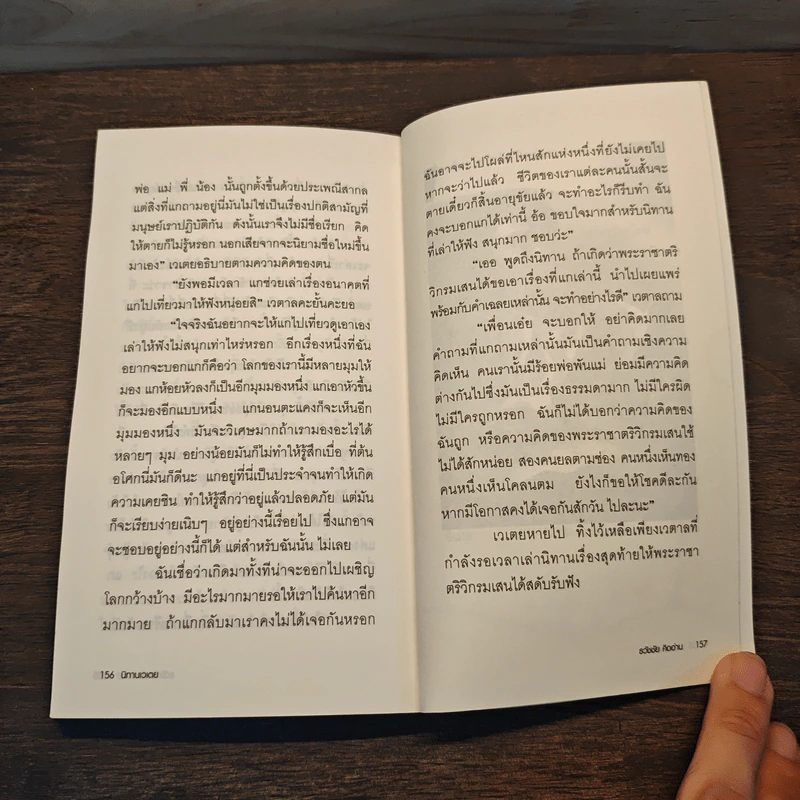 พ่อ แม่ พี่ น้อง นั้นถูกตั้งขึ้นด้วยประเพณีสากล
แต่สิ่งที่แกถามอยู่นี่มันไม่ใช่เป็นเรื่องปกติสามัญที่
มนุษย์เราปฏิบัติกัน ดังนั้นเราจึงไม่มีชื่อเรียก คิด
ให้ตายก็ไม่รู้หรอก นอกเสียจากจะนิยามชื่อใหม่ขึ้น
มาเอง” เวเตยอธิบายตามความคิดของตน
“ยังพอมีเวลา แกช่วยเล่าเรื่องอนาคตที่
แกไปเที่ยวมาให้ฟังหน่อยสิ” เวตาลคะยั้นคะยอ
“ใจจริงฉันอยากจะให้แกไปเที่ยวดูเอาเอง
เล่าให้ฟังไม่สนุกเท่าไหร่หรอก อีกเรื่องหนึ่งที่ฉัน
อยากจะบอกแกก็คือว่า โลกของเรานี้มีหลายมุมให้
มอง แกห้อยหัวลงก็เป็นอีกมุมมองหนึ่ง แกเอาหัวขึ้น
ก็จะมองอีกแบบหนึ่ง แกนอนตะแคงก็จะเห็นอีก
มุมมองหนึ่ง มันจะวิเศษมากถ้าเรามองอะไรได้
หลายๆ มุม อย่างน้อยมันก็ไม่ทำให้รู้สึกเบื่อ ที่ต้น
อโศกนี่มันก็ดีนะ แกอยู่ที่นี่เป็นประจำจนทำให้เกิด
ความเคยชิน ทำให้รู้สึกว่าอยู่แล้วปลอดภัย แต่มัน
ก็จะเรียบง่ายเนิบๆ อยู่อย่างนี้เรื่อยไป ซึ่งแกอาจ
จะชอบอยู่อย่างนี้ก็ได้ แต่สำหรับฉันนั้น ไม่เลย
ฉันเชื่อว่าเกิดมาทั้งทีน่าจะออกไปเผชิญ
โลกกว้างบ้าง มีอะไรมากมายรอให้เราไปค้นหาอีก
มากมาย ถ้าแกกลับมาเราคงไม่ได้เจอกันหรอก
156 นิทานเวเตย
ฉันอาจจะไปโผล่ที่ไหนสักแห่งหนึ่งที่ยังไม่เคยไป
หากจะว่าไปแล้ว ชีวิตของเราแต่ละคนนั้นสั้นจะ
ตายเดี๋ยวก็สิ้นอายุขัยแล้ว จะทำอะไรก็รีบทำ ฉัน
คงจะบอกแกได้เท่านี้ อ้อ ขอบใจมากสำหรับนิทาน
ที่เล่าให้ฟัง สนุกมาก ชอบว่ะ”
“เออ พูดถึงนิทาน ถ้าเกิดว่าพระราชาตริ
วิกรมเสนได้ขอเอาเรื่องที่แกเล่านี้ นำไปเผยแพร่
พร้อมกับคำเฉลยเหล่านั้น จะทำอย่างไรดี” เวตาลถาม
“เพื่อนเอ๋ย จะบอกให้ อย่าคิดมากเลย
คำถามที่แกถามเหล่านั้นมันเป็นคำถามเชิงความ
คิดเห็น คนเรานั้นมีร้อยพ่อพันแม่ ย่อมมีความคิด
ต่างกันไปซึ่งมันเป็นเรื่องธรรมดามาก ไม่มีใครผิด
ไม่มีใครถูกหรอก ฉันก็ไม่ได้บอกว่าความคิดของ
ฉันถูก หรือความคิดของพระราชาตริวิกรมเสนใช้
ไม่ได้สักหน่อย สองคนยลตามช่อง คนหนึ่งเห็นทอง
คนหนึ่งเห็นโคลนตม ยังไงก็ขอให้โชคดีละกัน
หากมีโอกาสคงได้เจอกันสักวัน ไปละนะ”
เวเตยหายไป ทิ้งไว้เหลือเพียงเวตาลที่
กำลังรอเวลาเล่านิทานเรื่องสุดท้ายให้พระราชา
ตริวิกรมเสนได้สดับรับฟัง
ธวัชชัย คิดอ่าน 157